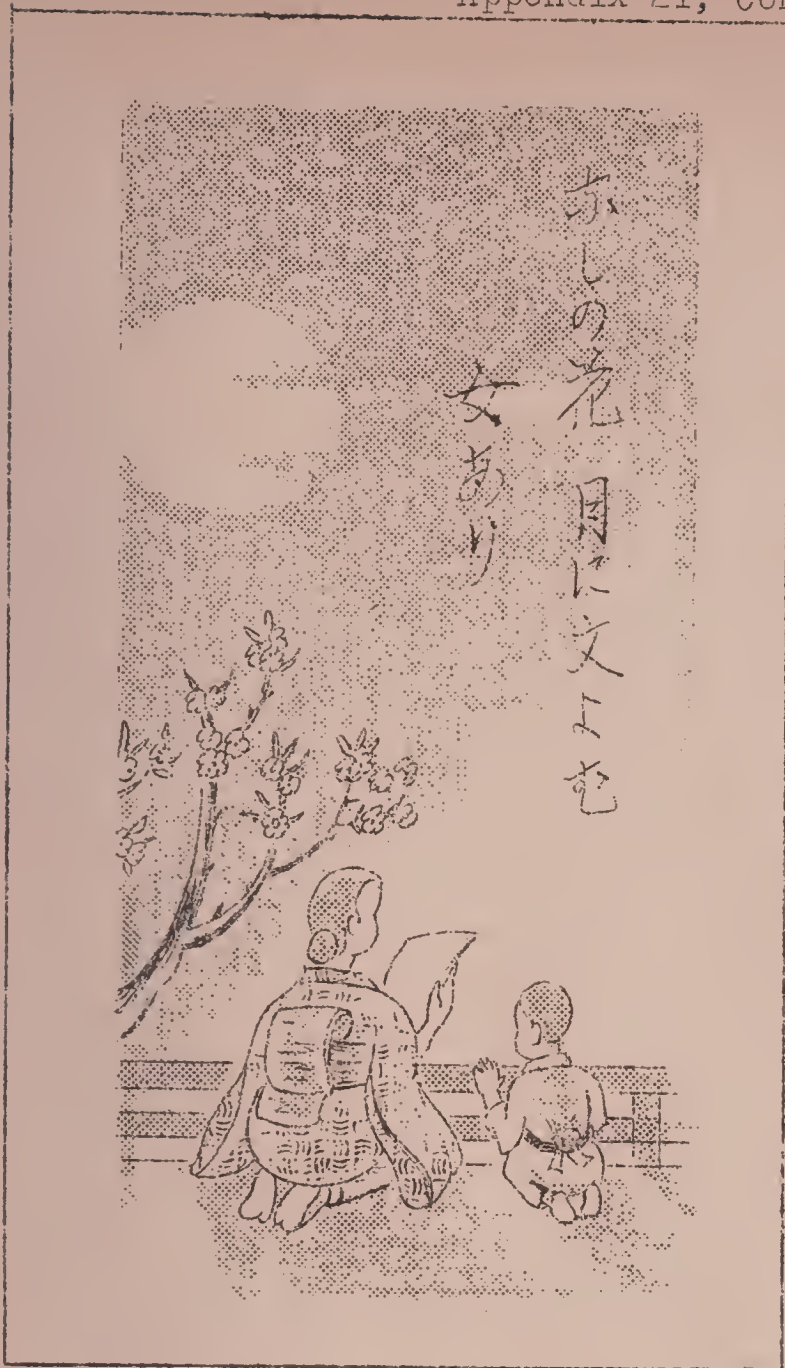 Appendix 21, Con
なしの花 月に文よむ
女あり